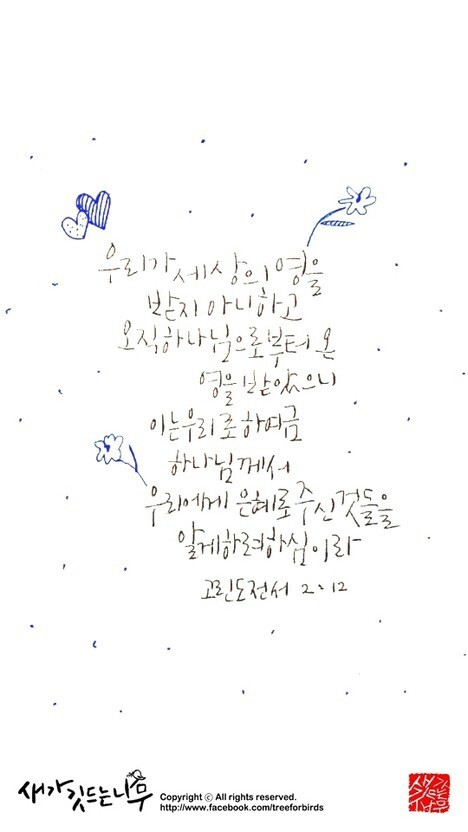 우리가 세상의 영을
받지 아니하고
오직 하나님으로부터 온
영을 받았으니
이는 우리로 하여금
하나님께서
우리에게 은혜로 주신 것들을
알게 하려 하심이라
고린도전서 2:12
새가 깃드는 나무
Copyright ⓒ All rights reserved.
http://www.facebook.com/treeforbirds
새가
깃드는
나무